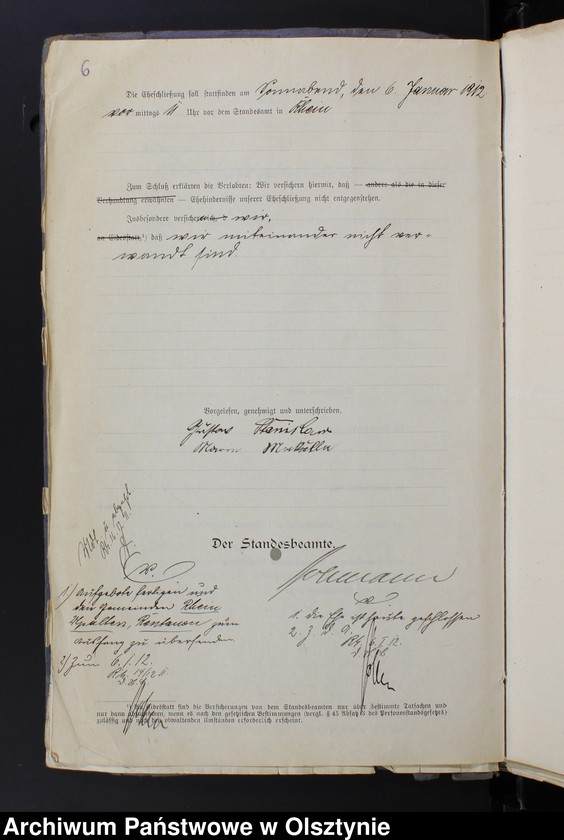 6
Die Eheschließung soll stattfinden am Sonnabend, den 6. Januar 1912
vor mittags 11 Uhr vor dem Standesamt in Rhein
Zum Schluß erklärten die Verlobten: Wir versichern hiermit, daß — andere als die in dieser
Verhandlung erwähnten — Ehehindernisse unserer Eheschließung nicht entgegenstehen.
Insbesondere versichern wir,
an Eidesstatt,¹) daß wir miteinander nicht ver-
wandt sind.
Vorgelesen, genehmigt und unterschrieben.
Gustav Stanislaw
Der Standesbeamte.
1) Aufgebote fertigen und
den Gemeinden Rhein
zum
Aushang zu übersenden
2) Zum 6.1.12.
1. die Ehe ist heute geschlossen
2. Z. d. A.
¹) An Eidesstatt sind die Versicherungen von dem Standesbeamten nur über bestimmte Tatsachen und
nur dann abzunehmen, wenn es nach den gesetzlichen Bestimmungen (vergl. § 45 Absatz 3 des Personenstandsgesetzes)
zulässig und nach den obwaltenden Umständen erforderlich erscheint.
Archiwum Państwowe w Olsztynie